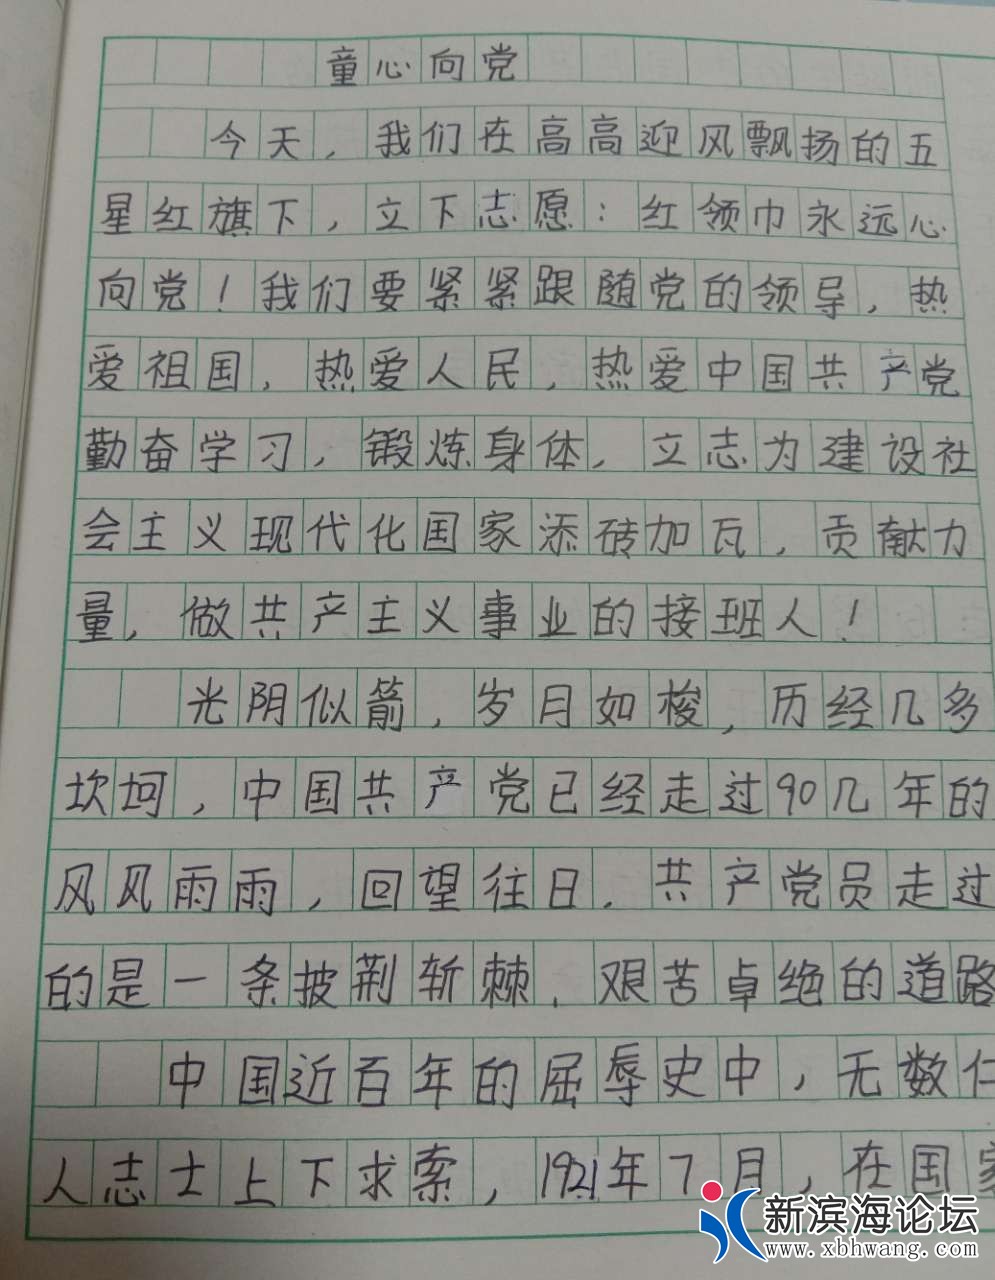 童心向党
今天,我们在高高迎风飘扬的五
星红旗下,立下志愿:红领巾永远心
向党!我们要紧紧跟随党的领导,热
爱祖国,热爱人民,热爱中国共产党
勤奋学习,锻炼身体,立志为建设社
会主义现代化国家添砖加瓦,贡献力
量,做共产主义事业的接班人!
光阴似箭,岁月如梭,历经几多
坎坷,中国共产党已经走过90几年的
风风雨雨,回望往日.共产党员走过
的是一条披荆斩棘.艰苦卓绝的道路
中国近百年的屈辱史中,无数仁
人志士上下求索,1921年7月,在国家
新滨海论坛
www.xbhwang.com